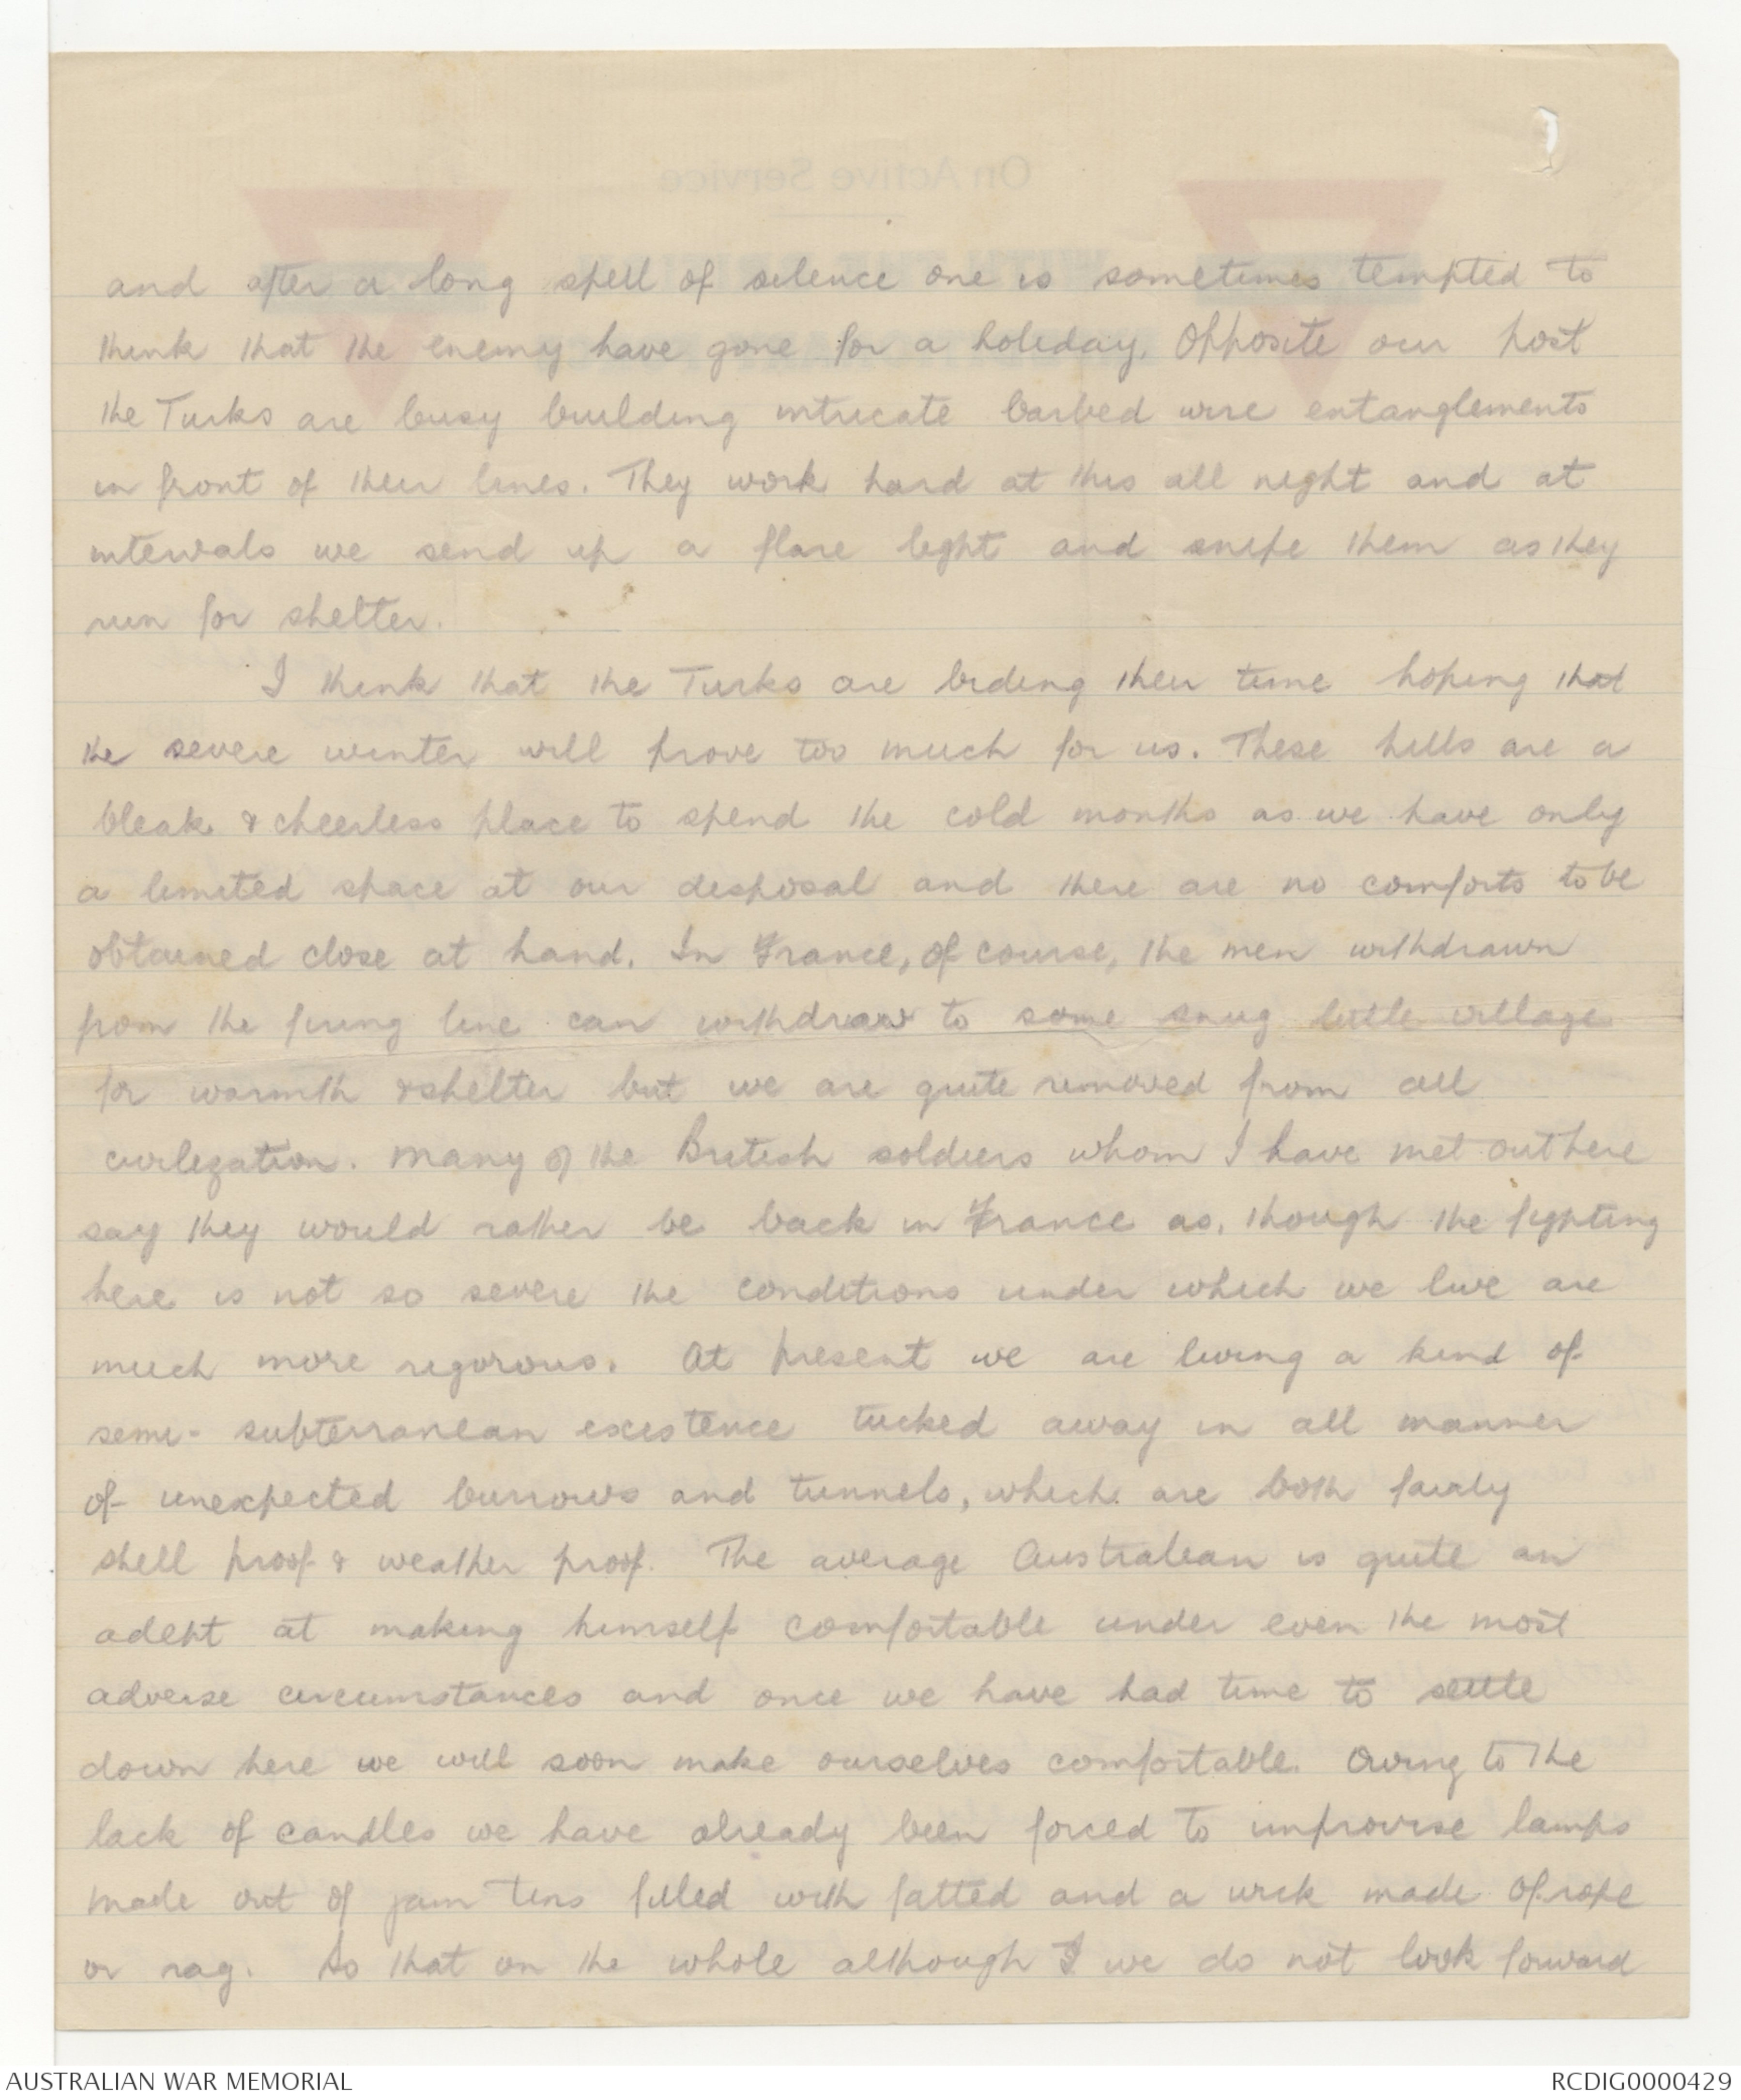 On Active Service
and after a long spell of silence one is sometimes tempted to
think that the enemy have gone for a holiday. Opposite our post
the Turks are busy building intricate barbed wire entanglements
in front of their lines. They work hard at this all night and at
intervals we send up a flare light and snipe them as they
run for shelter.
I think that the Turks are biding their time hoping that
the severe winter will prove too much for us. These hills are a
bleak & cheerless place to spend the cold months as we have only
a limited space at our disposal and there are no comforts to be
obtained close at hand. In France, of course, the men withdrawn
from the firing line can withdraw to some snug little village
for warmth & shelter but we are quite removed from all
civilization. Many of the British soldiers whom I have met out here
say they would rather be back in France as, though the fighting
here is not so severe the conditions under which we live are
much more rigorous. At present we are living a kind of
semi-subterranean existence tucked away in all manner
of unexpected burrows and tunnels, which are both fairly
shell proof & weather proof. The average Australian is quite an
adept at making himself comfortable under even the most
adverse circumstances and once we have had time to settle
down here we will soon make ourselves comfortable. Owing to the
lack of candles we have already been forced to improvise lamps
made out of jam tins filled with fatted and a wick made of rope
or rag. So that on the whole although I we do not look forward
AUSTRALIAN WAR MEMORIAL
RCDIG0000429